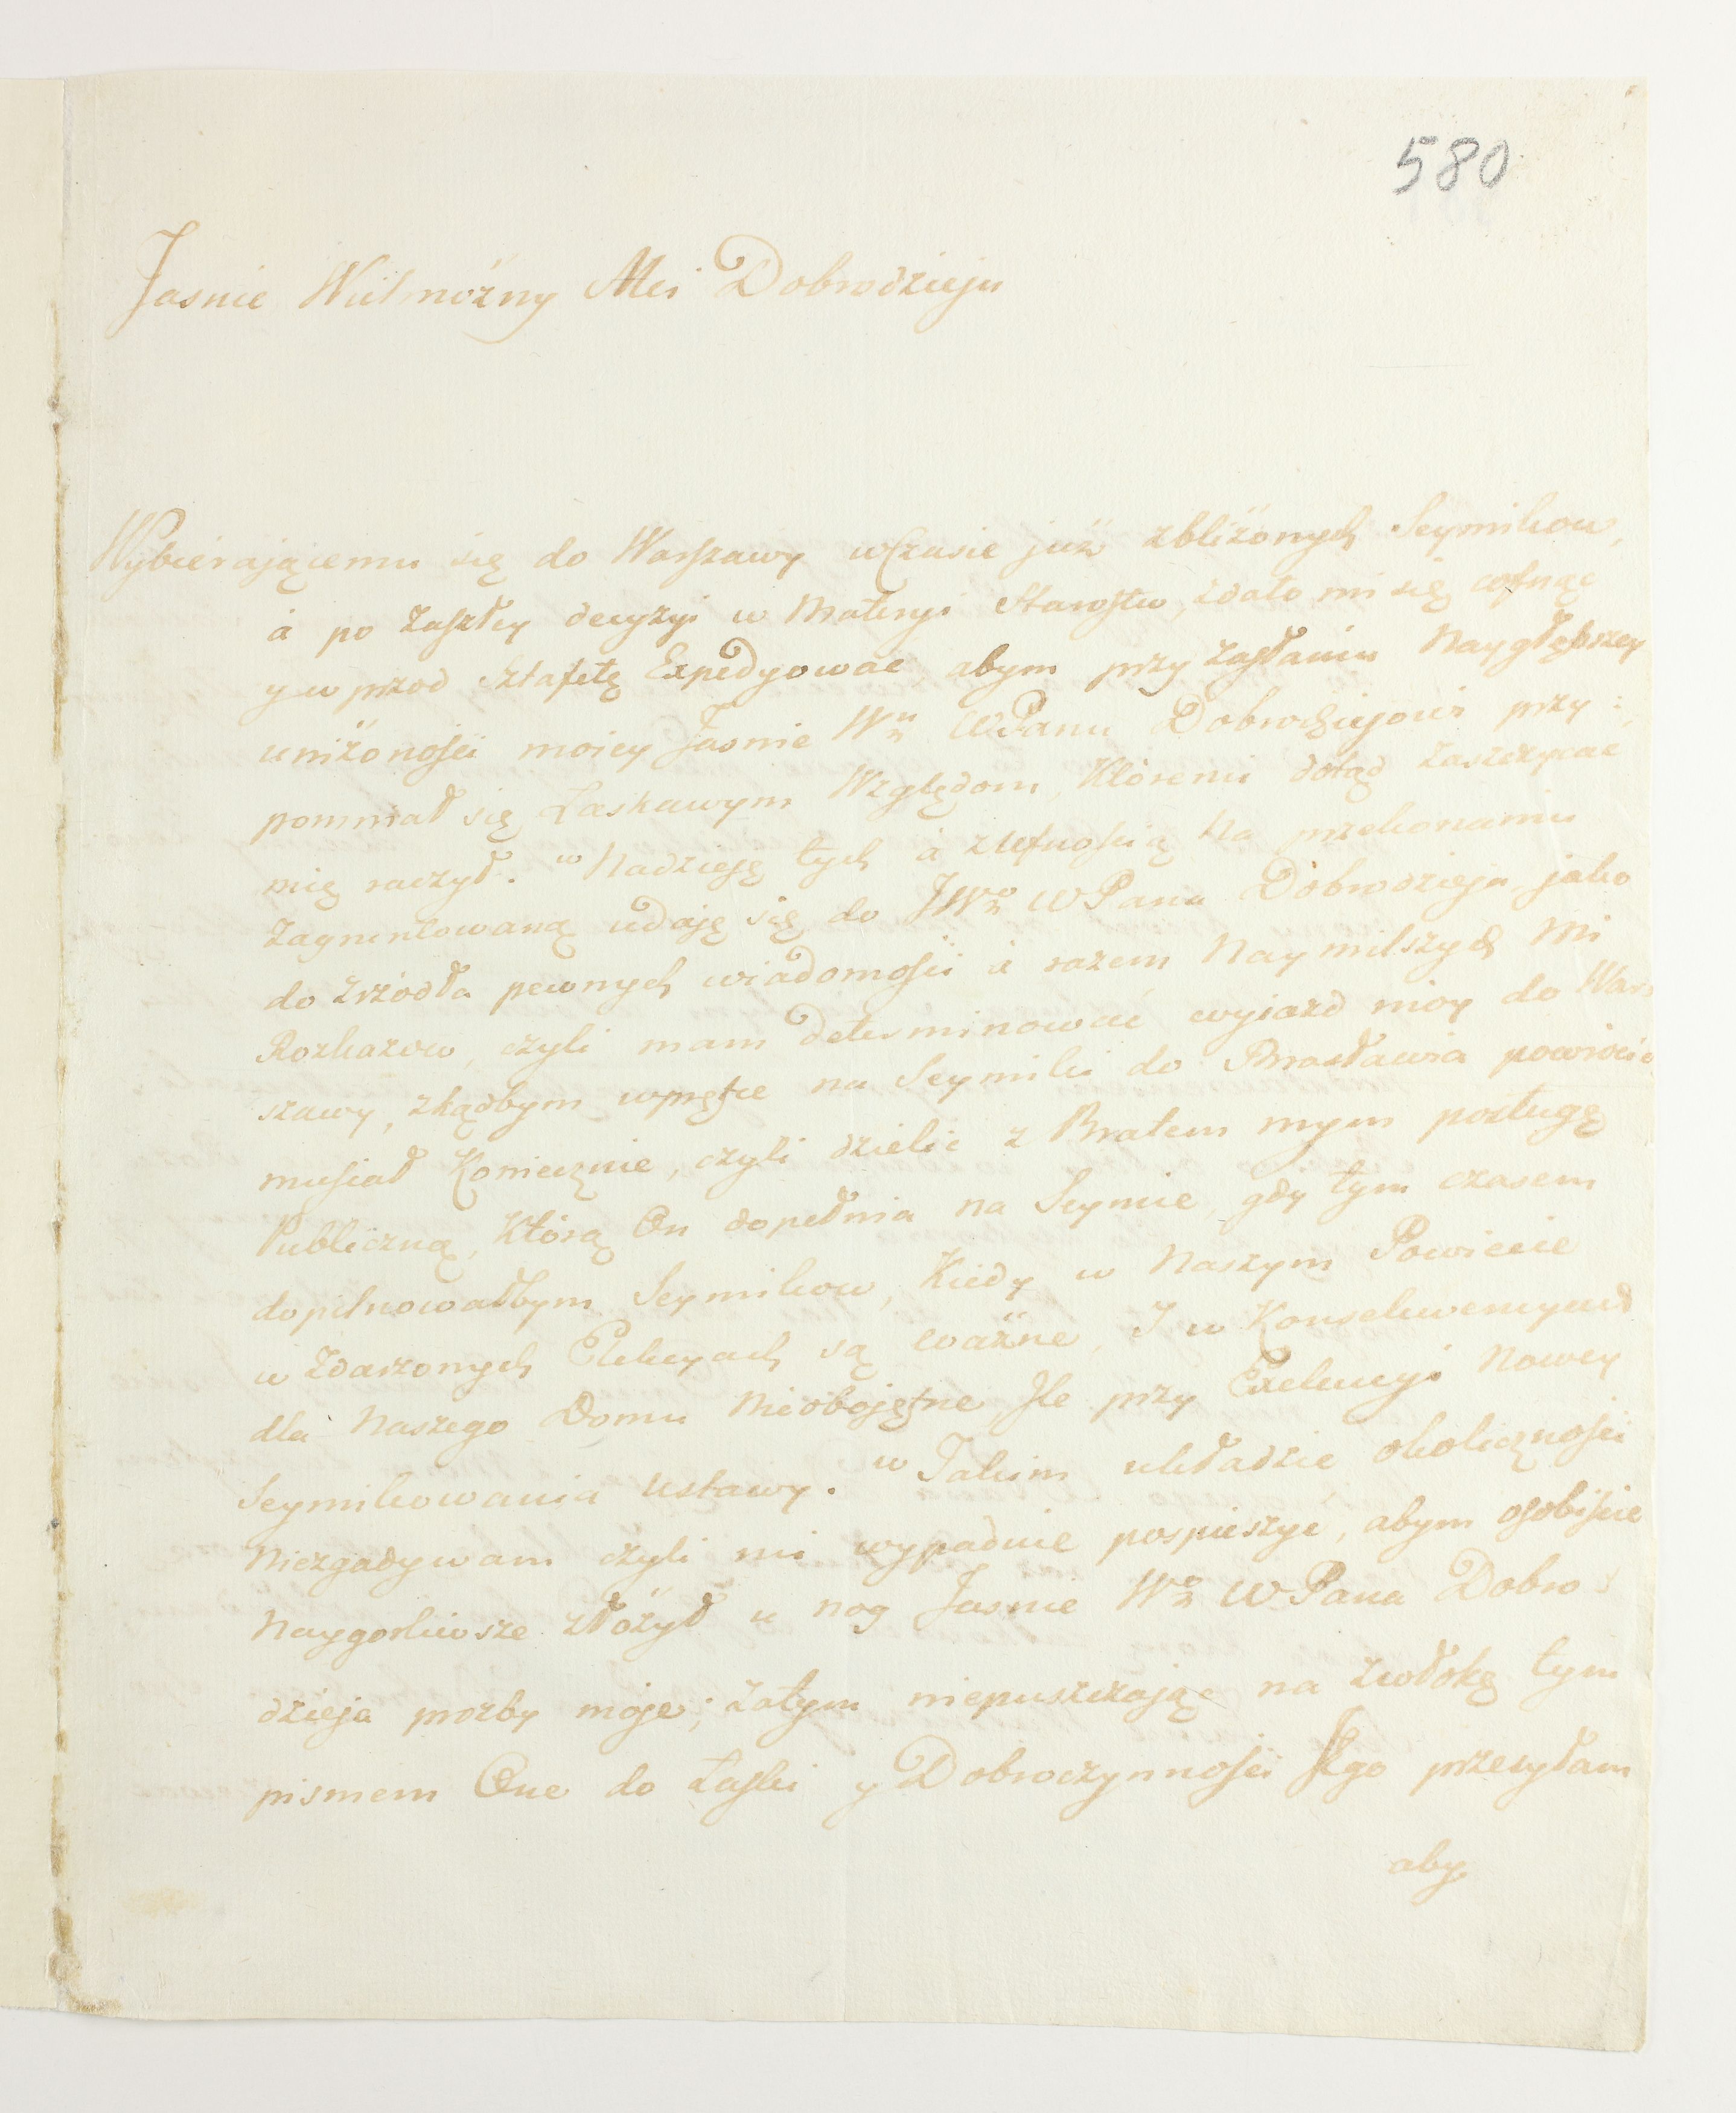 580
Jasnie Wielmożny Mci Dobrodzieju
Wybierającemu się do Warszawy w Czasie już zbliżonych Seymikow,
á po Zaszłey decyzyi w Materyi Starostw, zdało mi się cofnąc
y w przod sztafetę Expedyowac, abym przy Zasłaniu Naygłębszey
uniżonosci moiey Jasnie Wu WPanu Dobrodziejowi przy:
pomniał się Łaskawym Względom, Któremi dotąd Zaszczycac
mię raczył. w Nadzieję tych á z ufnoscią na przekonaniu
Zagruntowaną udaję się do JWo WPana Dobrodzieja jako
do Zrzódła pewnych wiadomosci á razem Naymilszych Mi
Rozkazow, czyli mam determinowac wyiazd moy do War:
szawy, zkądbym wprętce na Seymiki do Brasławia powrócic
musiał Koniecznie, czyli dzielic z Bratem mym posługę
Publiczną, Którą On dopełnia na Seymie, gdy tym czasem
dopilnowałbym Seymikow, Kiedy w Naszym Powiecie
w Zdarzonych Elekcyach są ważne, I w Konsekwencyach
dla Naszego Domu Nieobojętne Ile przy Exekucyi Nowey
Seymikowania Ustawy. w Takim układzie okolicznosci
Niezgadywam czyli mi wypadnie pospieszyć, abym osobiscie
Naygorliwsze złożył u nog Jasnie Wo WPana Dobro:
dzieja prozby moje; Zatym niepuszczając na zwłokę tym
pismem One do Łaski y Dobroczynnosci Jego przesyłam
aby